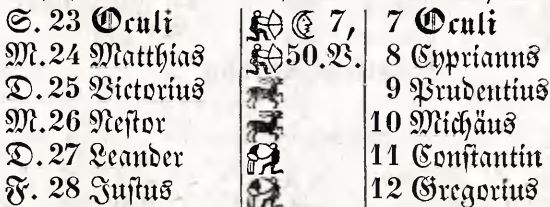 S. 23 Oculi ☾ 7, 7 Oculi
M. 24 Matthias 50. V. 8 Cyprianns
D. 25 Victorius 9 Prudentius
M. 26 Neſtor 10 Michäus
D. 27 Leander 11 Conſtantin
F. 28 Juſtus 12 Gregorius